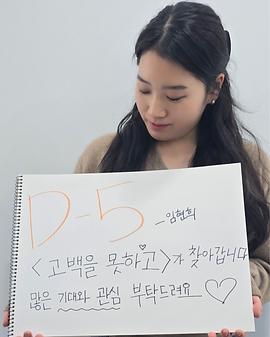 D-5
-임현희
<고백을 못하고>가 찾아갑니다
많은 기대와 관심 부탁드려요